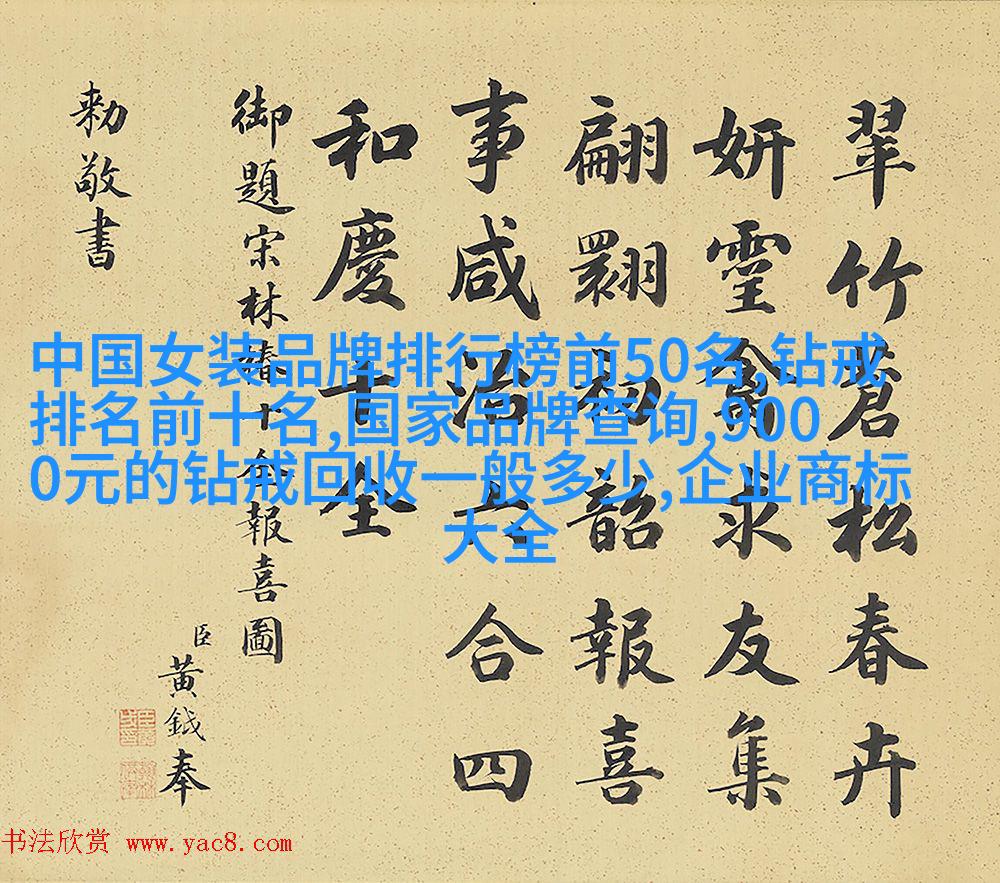 翠竹蒼松春卉
妍靈禽求友集
翩翾初韶報喜
事咸洽六合四
和慶十全
御題宋林椿十全報喜圖
臣黃鉞奉
勅敬書
中国女装品牌排行榜前50名,钻戒
排名前十名,国家品牌查询,900
0元的钻戒回收一般多少,企业商标
大全
书法欣赏 www.yac8.com